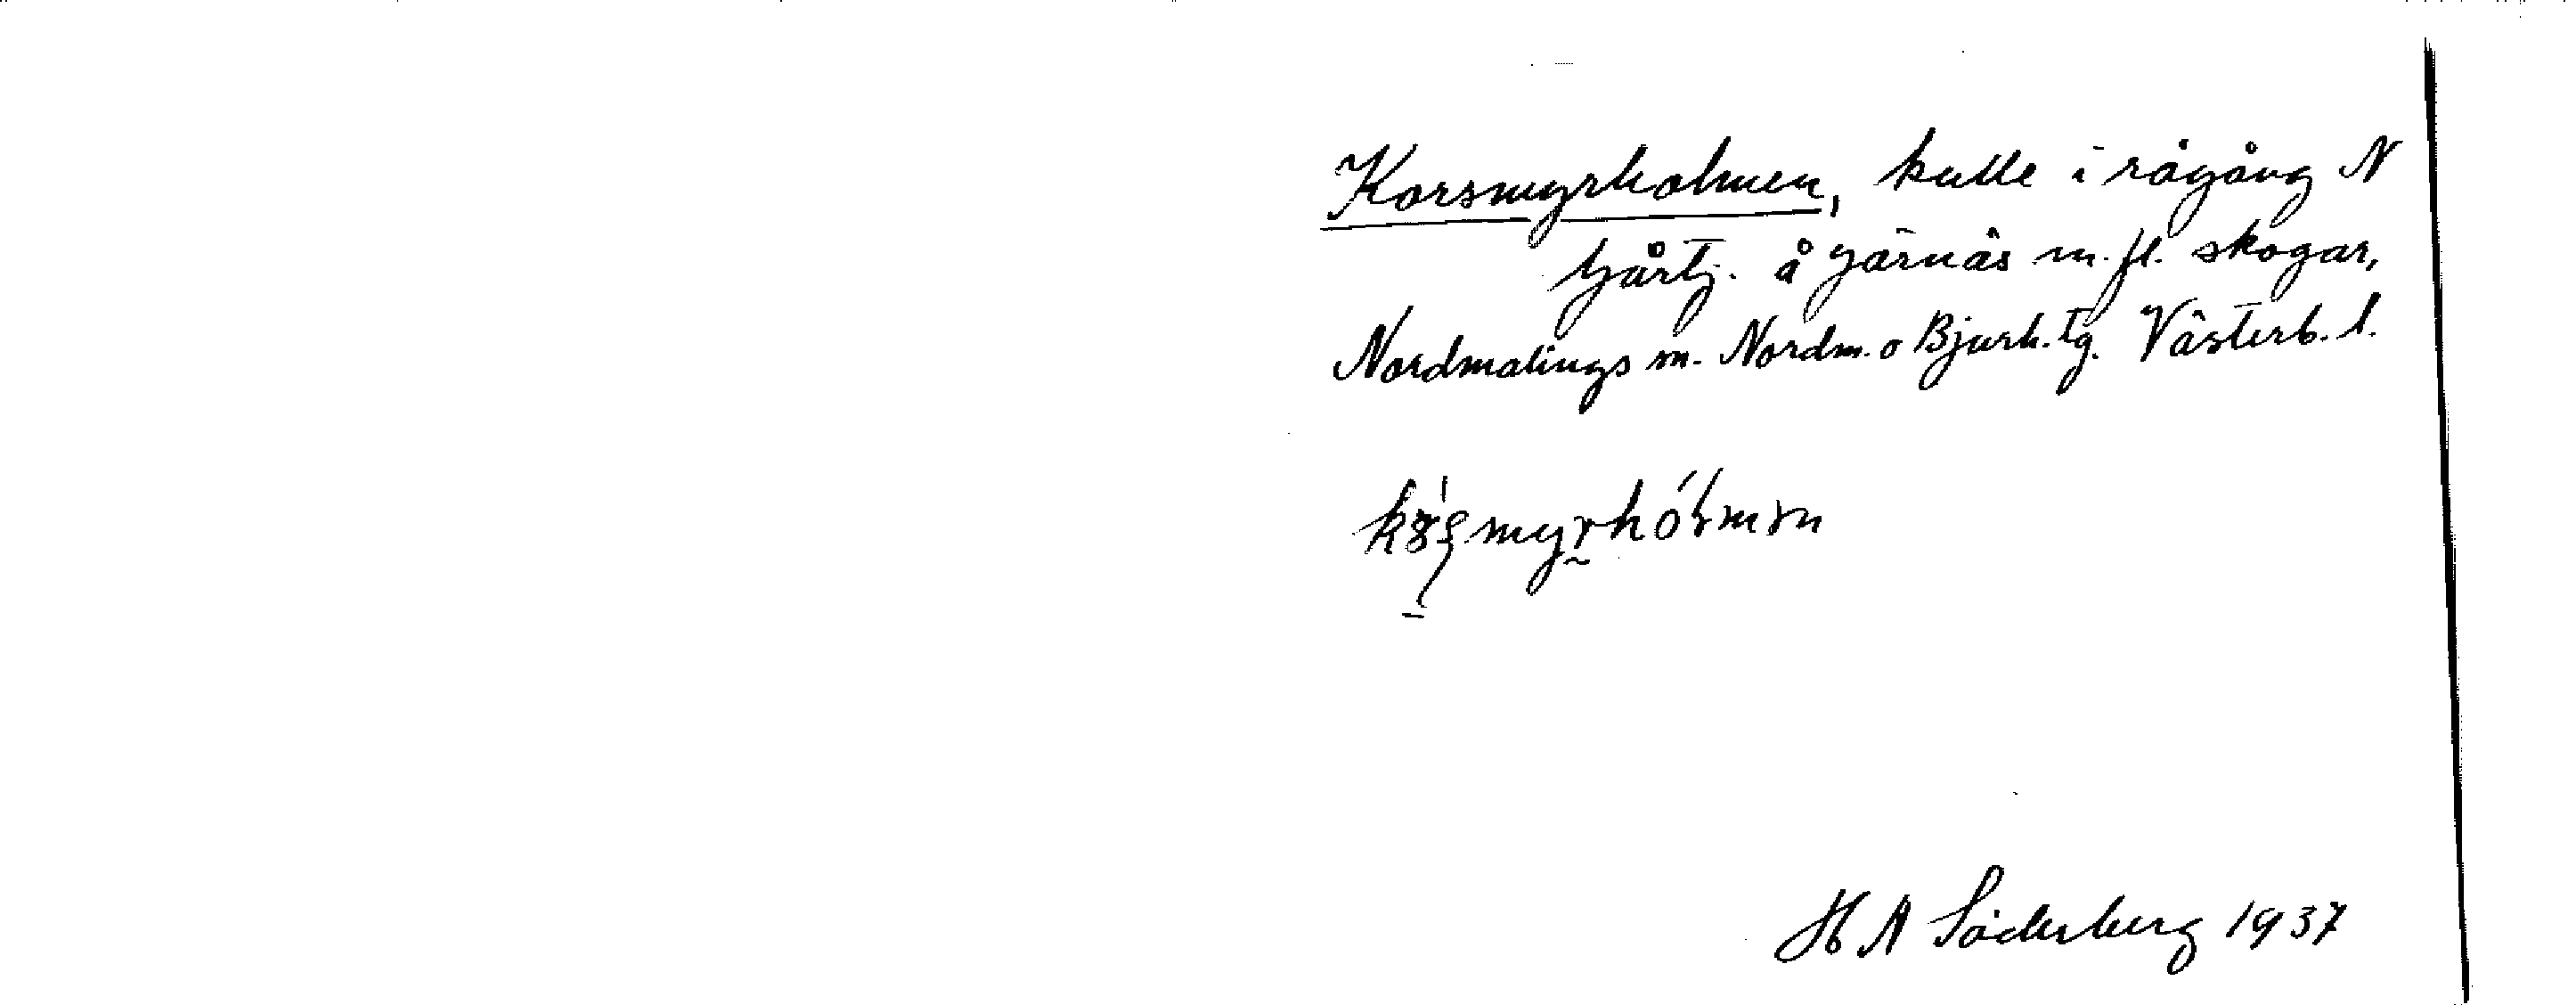 Korsmyrholmen, kulle i rågång N
å Järnäs m.fl. skogar,
Nordmalings m. Nordm. o Bjurh. tg. Västerb. l.
H A Söderberg 1937